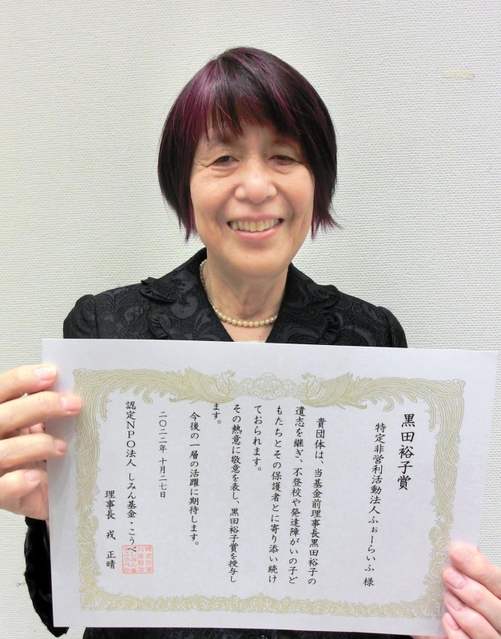 黒田裕子賞
特定非営利活動法人ふぉーらいふ 様
貴団体は、当基金前理事長黒田裕子の
遺志を継ぎ、不登校や発達障がいの子ど
もたちとその保護者とに寄り添い続け
ておられます。
その熱意に敬意を表し、黒田裕子賞を授与し
ます。
今後の一層の活躍に期待します。
二〇二二年 十月二七日
認定NPO法人 しみん基金・こうべ
理事長 戎 正晴